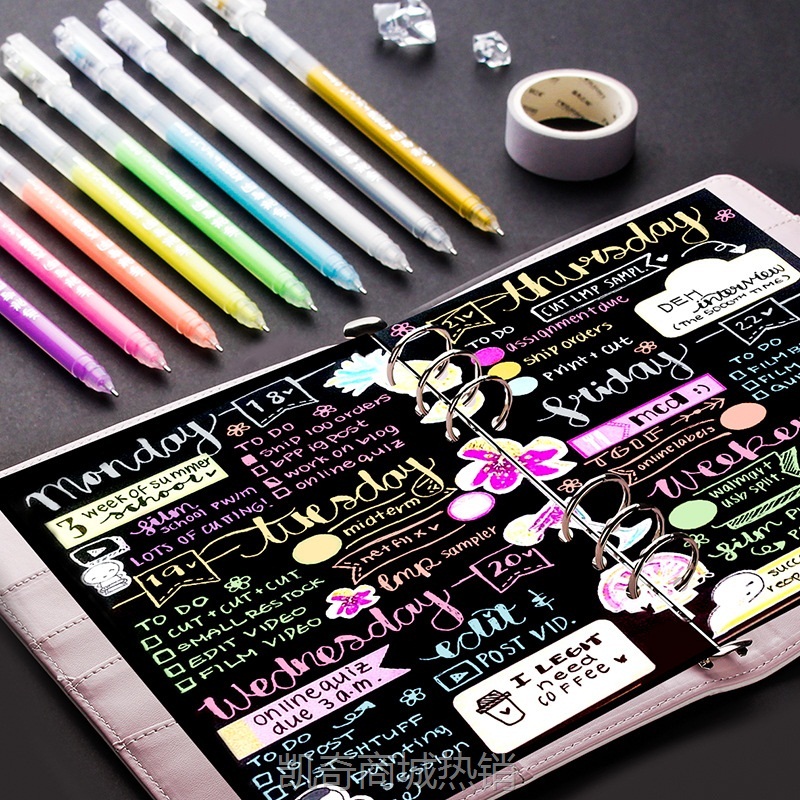 monday
18
TO DO
SHIP 100 ORDERS
BPP IG POST
WORK ON BLOG
ONLINE QUIZ
3 week of summer
school
film
SCHOOL PW/M
LOTS OF CUTTING!
tuesday
19
midterm
netflix
lmp sampler
TO DO
CUT + CUT + CUT
SMALL RESTOCK
EDIT VIDEO
FILM VIDEO
wednesday
20
edit &
POST VID.
online quiz
due 3 a.m.
TO DO
POST
I LEGIT
need
COFFEE
thursday
21
CUT LMP SAMPL
TO DO
assignment due
ship orders
print + cut
DEM interview
(THE 500TH TIME)
friday
22
TO DO
FILM
mcd :)
TGIF
onlinelabels
weeke
walmart
usb split.
film
凯奇商城热销